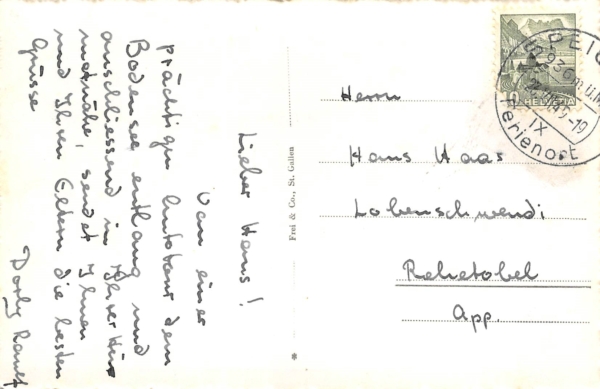 Lieber Hans!
Von einer
prächtigen Autotour dem
Bodensee entlang und
anschliessend in Ihrer Hüs
nötnähe, sendet Ihnen
und Ihren Eltern die besten
Grüsse
Dorly
Frei & Co., St. Gallen
Herrn
Hans Haas
Lobenschwendi
Rehetobel
App.
HELVETIA
936 m ü.M.
IX
Ferienort